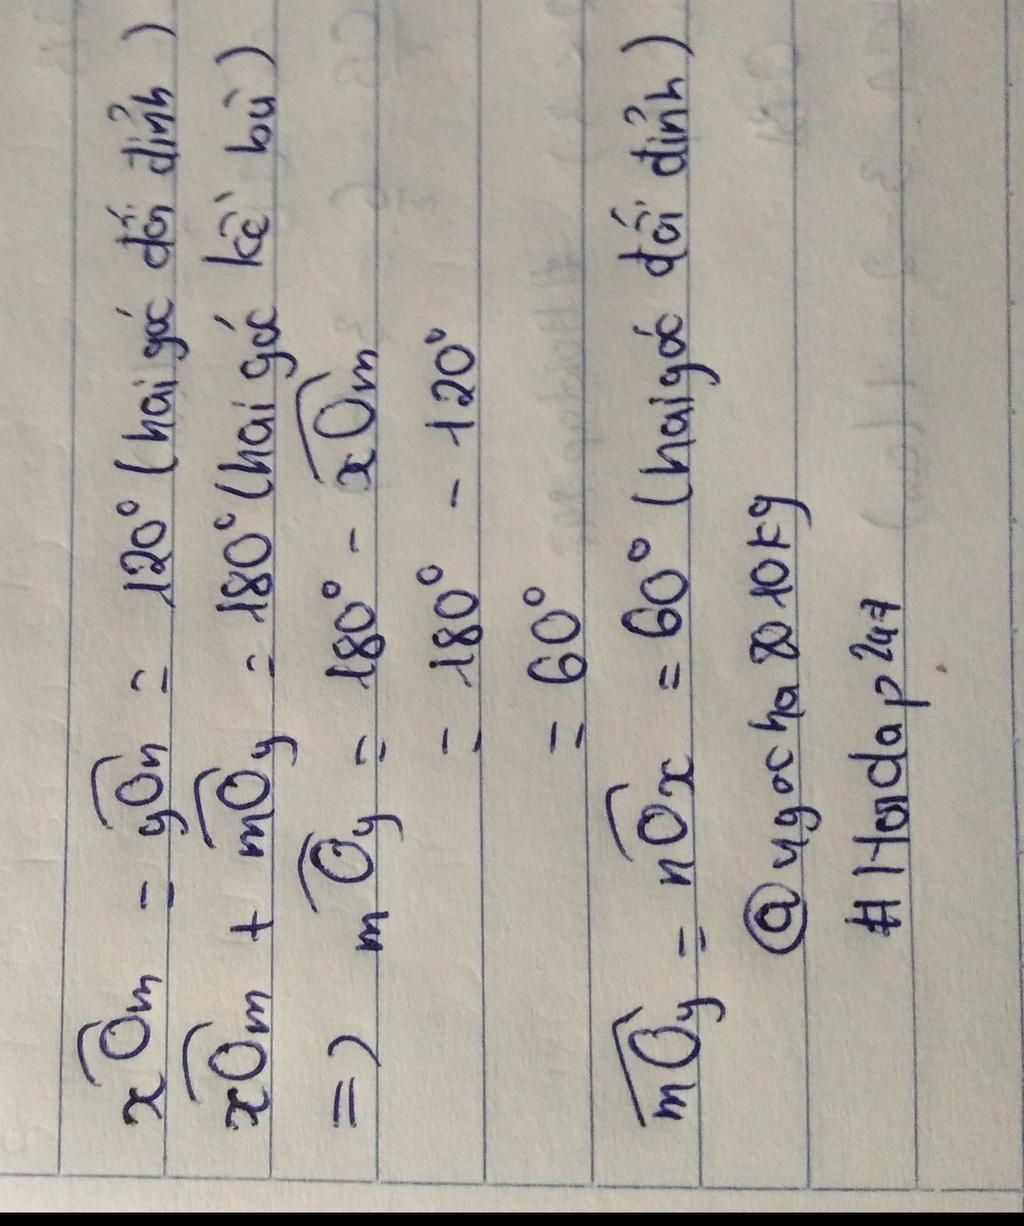 xOm = yOn = 120° (hai góc đối đỉnh)
xOm + mOy = 180° (hai góc kề bù)
=) mOy = 180° - xOm
= 180° - 120°
= 60°
mOy = nOx = 60° (hai góc đối đỉnh)
#Hoidap247